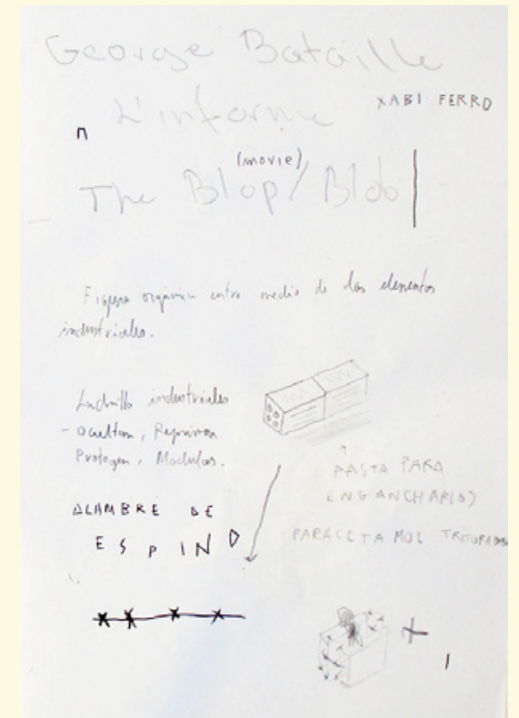 George Bataille
L'informe
XABI FERRO
n
(movie)
The Blop/Blob
Figura orgánica entre medio de dos elementos
industriales.
Ladrillo industriales
- Ocultan, Reprimen
Protegen, Modulos.
PASTA PARA
ENGANCHARLO)
ALAMBRE DE
ESPINO
PARACETAMOL TRITURADO